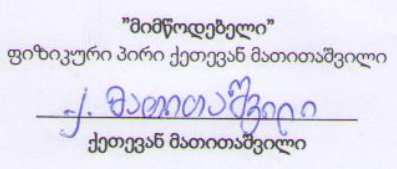 "მიმწოდებელი"
ფიზიკური პირი ქეთევან მათითაშვილი
ქ. მათითაშვილი
ქეთევან მათითაშვილი